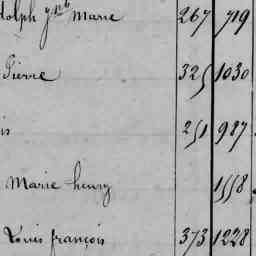 dolph Jph Marie 267 719
Pierre 325 1030
is 251 987
Marie henry 1558
Louis françois 373 1228